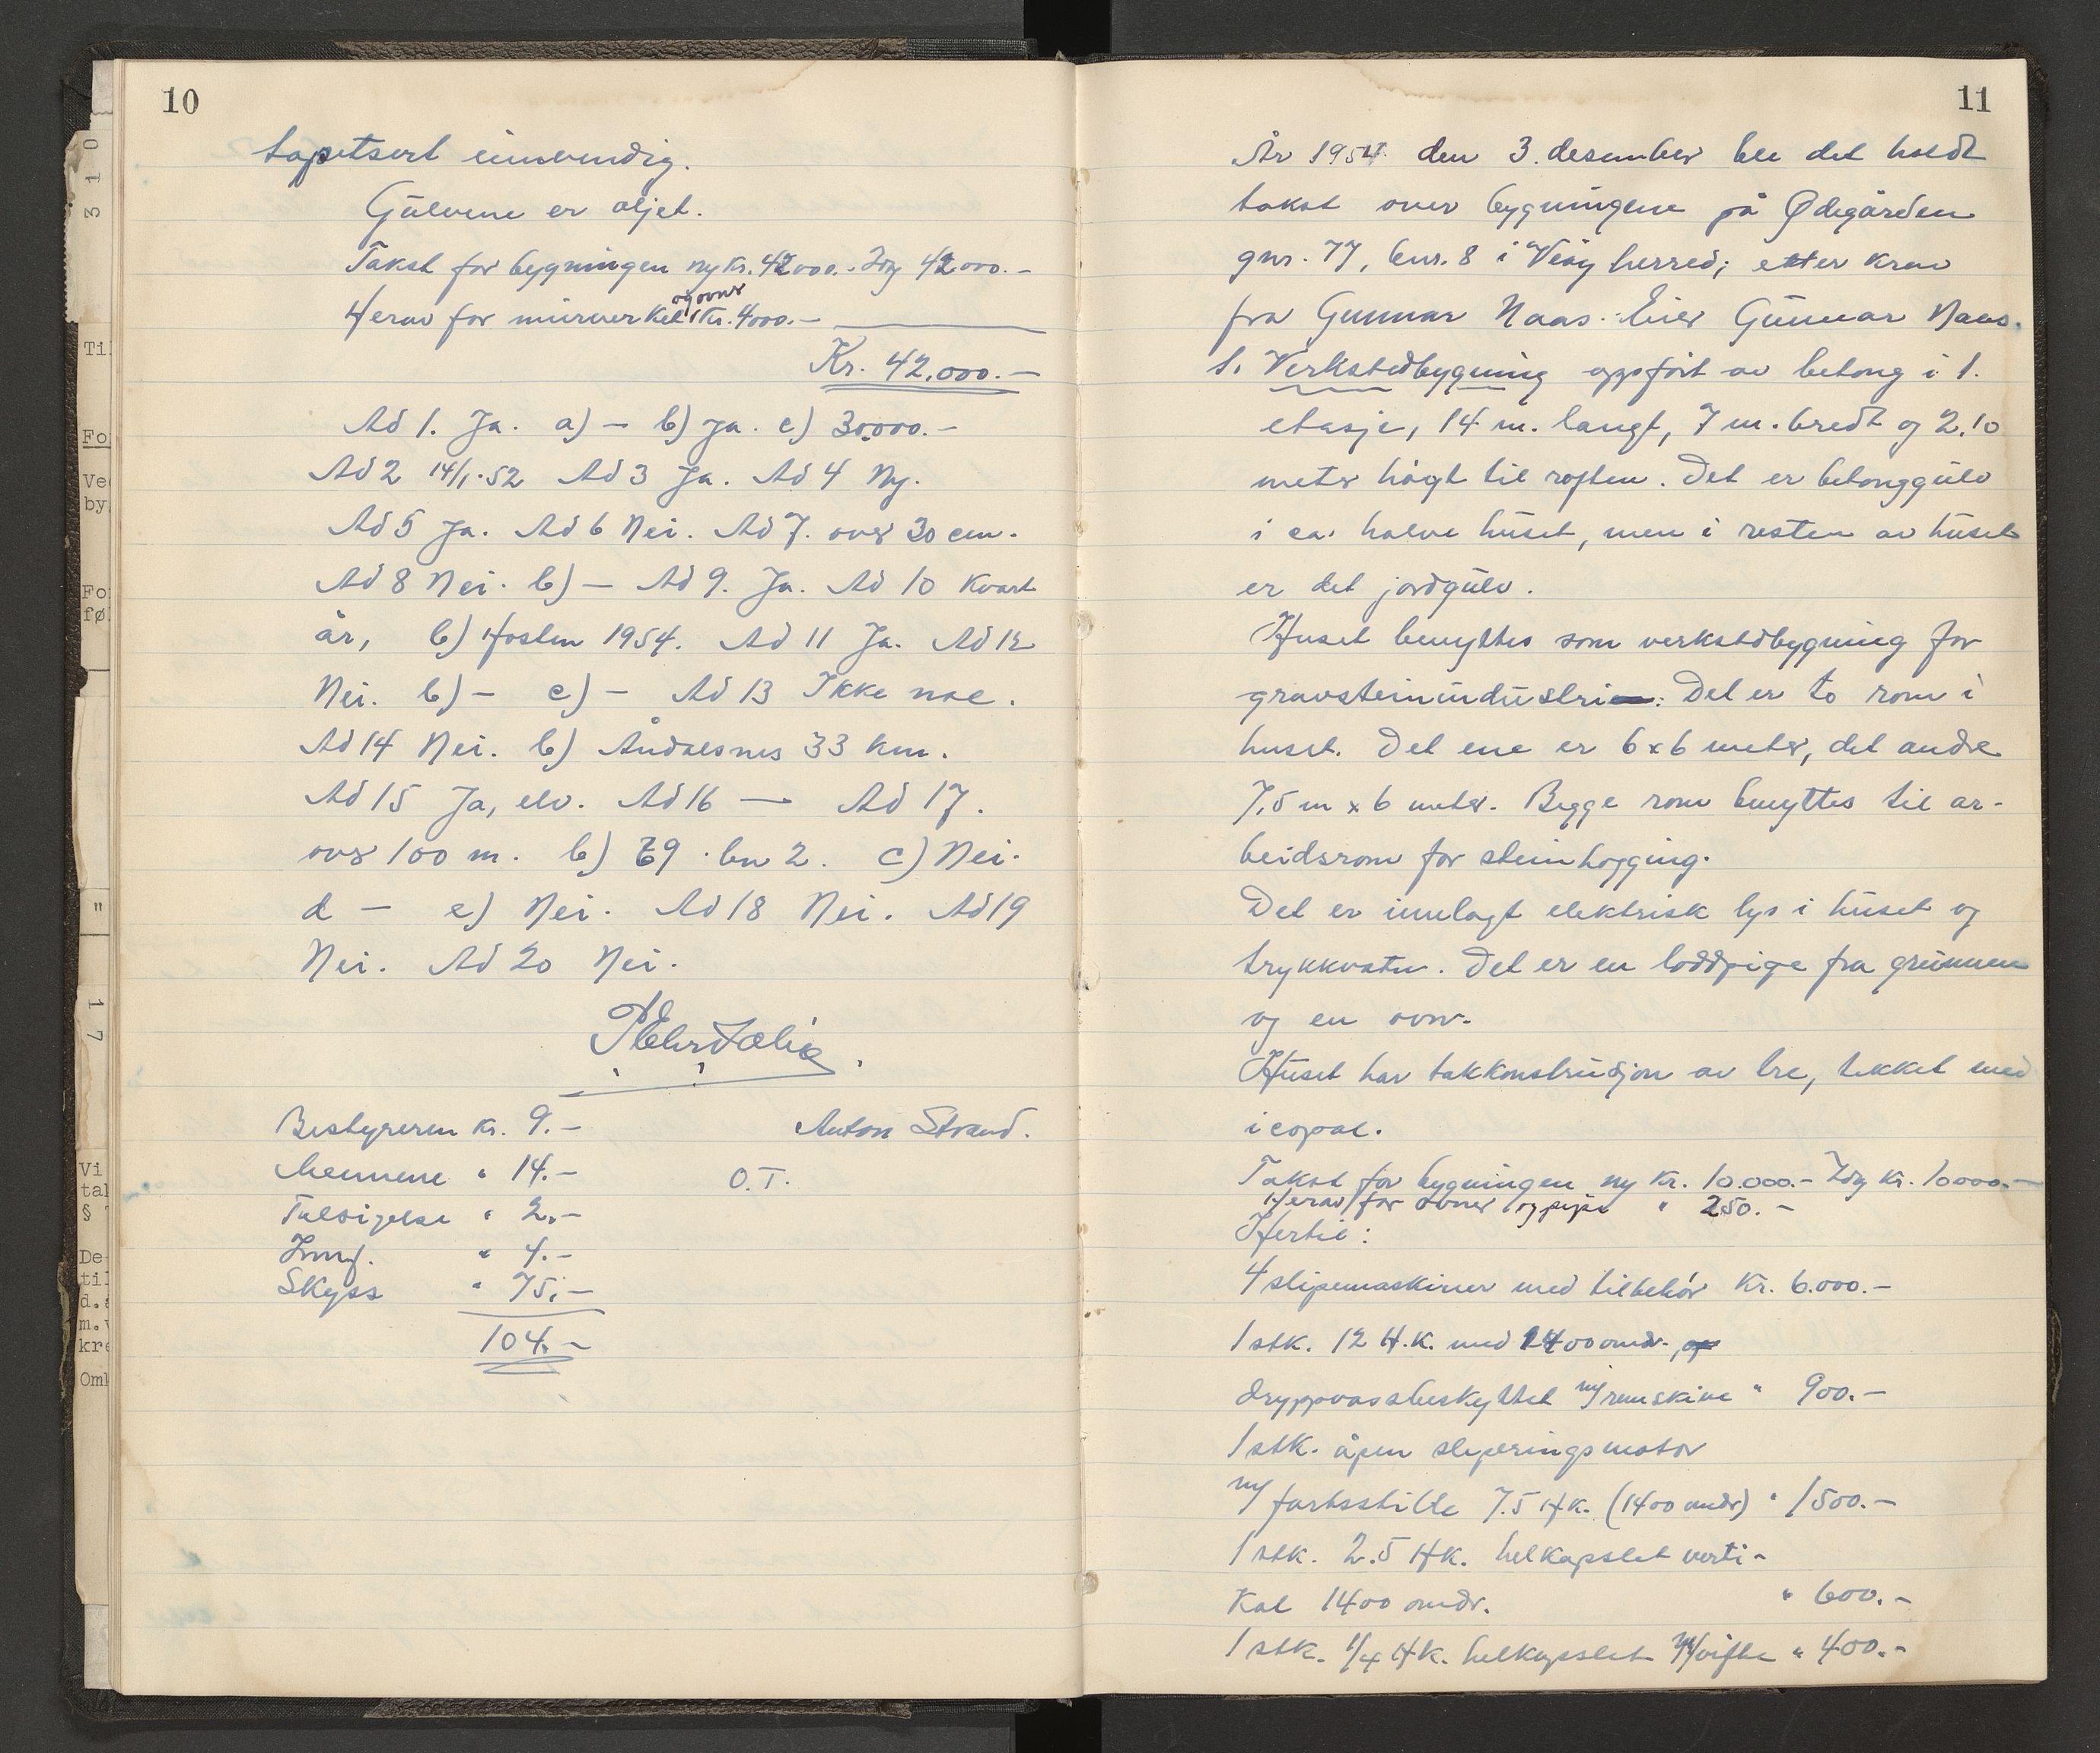 10
tapetsert innvendig.
Gulvene er oljet.
Takst for bygningen ny kr. 42000.- Idag 42000.-
Herav for murverket og ovner kr. 4000.-
Kr. 42.000.-
Ad 1. Ja. a) - b) Ja. c) 30.000.-
Ad 2 14/1.52 Ad 3 Ja. Ad 4 Ny.
Ad 5 Ja. Ad 6 Nei. Ad 7. over 30 cm.
Ad 8 Nei. b) - Ad 9. Ja. Ad 10 Kvart
år, b) Hosten 1954. Ad 11 Ja. Ad 12
Nei. b) - c) - Ad 13 Ikke noe.
Ad 14 Nei. b) Åndalsnes 33 km.
Ad 15 Ja, elv. Ad 16 - Ad 17.
over 100 m. b) 69 bn 2. c) Nei.
d - e) Nei. Ad 18 Nei. Ad 19
Nei. Ad 20 Nei.
Bestyreren kr. 9.- Anton Strand.
Mennene " 14.- O.T.
Tilsigelse " 2.-
Innf. " 4.-
Skyss " 75.-
104.-
11
År 1954 den 3. desember ble det holdt
takst over bygningene på Ødegården
gnr. 77, bnr. 8 i Veøy herred; etter krav
fra Gunnar Naas. Eier Gunnar Naas.
1. Verkstedbygning oppført av betong i 1.
etasje, 14 m. langt, 7 m. bredt og 2.10
meter høgt til roften. Det er betonggulv
i ca. halve huset, men i resten av huset
er det jordgulv.
Huset benyttes som verkstdbygning for
gravsteinindustri. Det er to rom i
huset. Det ene er 6 x 6 meter, det andre
7,5 m x 6 meter. Begge rom benyttes til ar-
beidsrom for steinhogging.
Det er innlagt elektrisk lys i huset og
trykkvatn. Det er en loddpipe fra grunnen
og en ovn.
Huset har takkonstruksjon av tre, tekket med
icopal.
Takst for bygningen ny kr. 10.000.- Idag kr. 10000.-
Herav for ovner og pipe " 250.-
Hertil:
4 slipemaskiner med tilbehør Kr. 6.000.-
1 stk. 12 H.K. med 1400 omdr. og
dryppvassbeskyttet m/remskive " 900.-
1 stk. åpen sleperingsmotor
m/ fartsstille 7.5 Hk. (1400 omdr) " 1500.-
1 stk. 2.5 Hk. helkapslet verti-
kal 1400 omdr. " 600.-
1 stk. 1/4 Hk. helkapslet m/vifte " 400.-